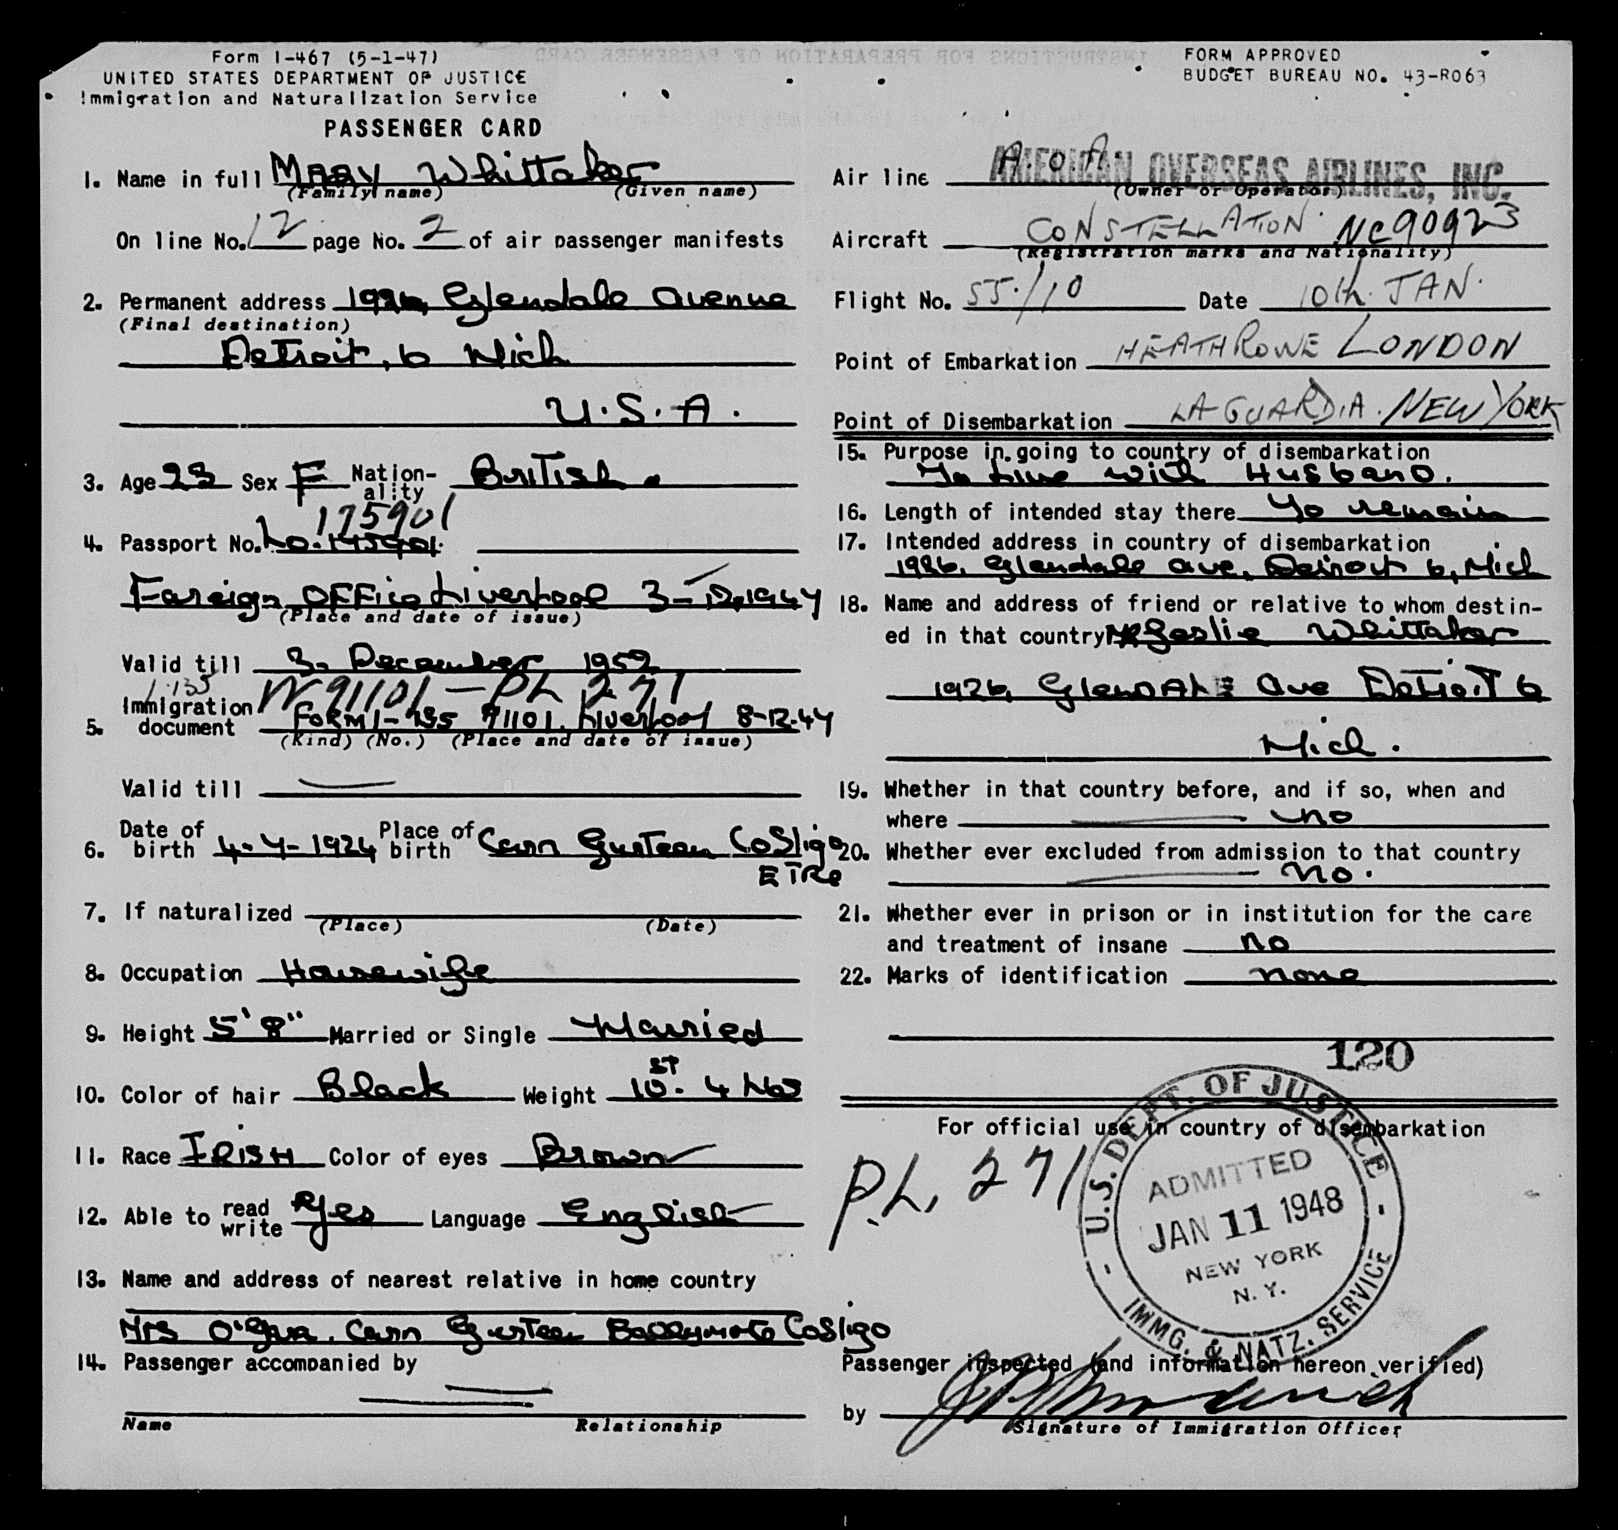 Form I-467 (5-1-47)
UNITED STATES DEPARTMENT OF JUSTICE
Immigration and Naturalization Service
PASSENGER CARD
FORM APPROVED
BUDGET BUREAU NO. 43-R063
1. Name in full Mary Whittaker
(Family name) (Given name)
On line No. 12 page No. 2 of air passenger manifests
2. Permanent address Glendale Avenue
(Final destination)
Detroit, 6 Mich
U.S.A.
3. Age 23 Sex F Nation-ality British.
175901
4. Passport No. Lo.
Foreign Office Liverpool 3-12-1947
(Place and date of issue)
Valid till 3. December 1952
I-135 W91101 - PL 271
5. Immigration document Form I-135 91101. Liverpool 8-12-47
(Kind) (No.) (Place and date of issue)
Valid till
6. Date of birth 4-4-1924 Place of birth Carn Gurteen Co Sligo
EIRE
7. If naturalized
(Place) (Date)
8. Occupation Housewife
9. Height 5'8" Married or Single Married
10. Color of hair Black Weight 10 ST. 4 lbs
11. Race IRISH Color of eyes Brown
12. Able to read write Yes Language English
13. Name and address of nearest relative in home country
Mrs O'Gara. Carn Gurteen Ballymote Co Sligo
14. Passenger accompanied by
Name Relationship
Air line A O A
AMERICAN OVERSEAS AIRLINES, INC.
(Owner or Operator)
Aircraft CONSTELLATION NC90923
(Registration marks and Nationality)
Flight No. 55/10 Date 10th JAN.
Point of Embarkation HEATHROWE LONDON
Point of Disembarkation LA GUARDIA. NEW YORK
15. Purpose in going to country of disembarkation
To Live with Husband.
16. Length of intended stay there To remain
17. Intended address in country of disembarkation
1926, Glendale Ave, Detroit 6, Mich
18. Name and address of friend or relative to whom destin-
ed in that country Mr Leslie Whittaker
1926, Glendale Ave Detroit 6
Mich.
19. Whether in that country before, and if so, when and
where no
20. Whether ever excluded from admission to that country
no.
21. Whether ever in prison or in institution for the care
and treatment of insane no
22. Marks of identification none
120
For official use in country of disembarkation
P.L. 271
U.S. DEPT. OF JUSTICE
ADMITTED
JAN 11 1948
NEW YORK
N. Y.
IMMG. & NATZ. SERVICE
Passenger inspected (and information hereon verified)
by
Signature of Immigration Officer